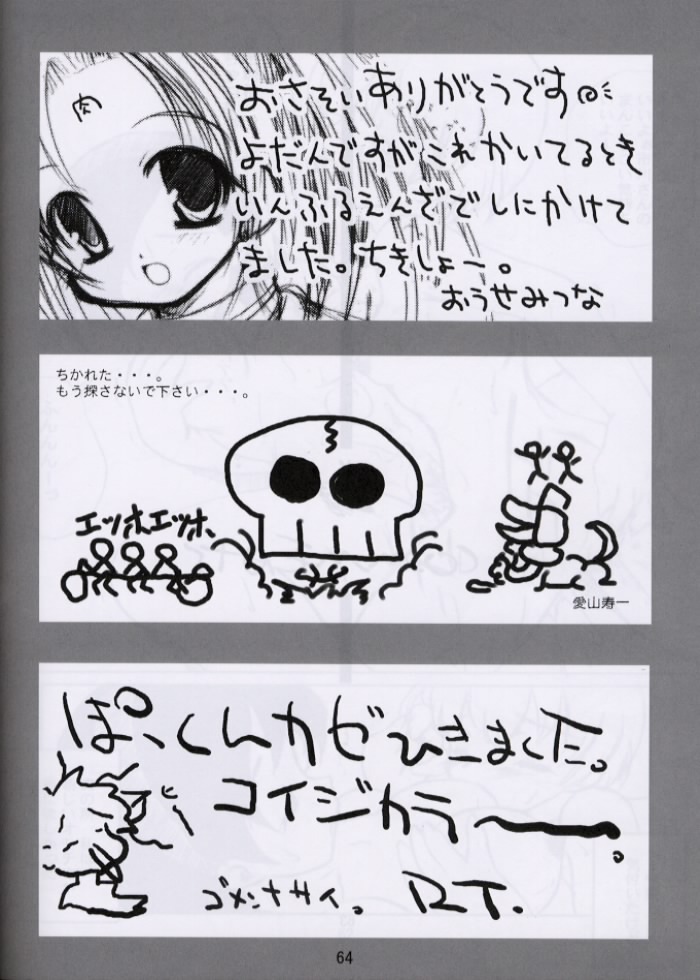 肉
おさそいありがとうです
よだんですがこれかいてるとき
いんふるえんざでしにかけて
ました。ちきしょー。
おうせみつな
ちかれた・・・。
もう探さないで下さい・・・。
エッホエッホ、
愛山寿一
ぱっくんカゼひきました。
コイジカラー。
ゴメンナサイ。 RT.
64